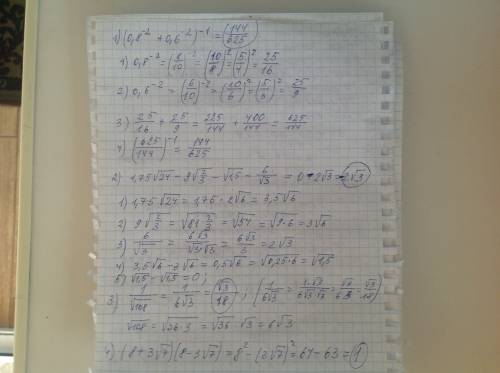 1) (0,8⁻² + 0,6⁻²)⁻¹ = (144/625
1) 0,8⁻² = (8/10)⁻² = (10/8)² = (5/4)² = 25/16
2) 0,6⁻² = (6/10)⁻² = (10/6)² = (5/3)² = 25/9
3) 25/16 + 25/9 = 225/144 + 400/144 = 625/144
4) (625/144)⁻¹ = 144/625
2) 1,75√24 - 9√(2/3) - √1,5 - 6/√3 = 0 - 2√3 = 2√3
1) 1,75√24 = 1,75 · 2√6 = 3,5√6
2) 9√(2/3) = √(81 2/3) = √54 = √(9·6) = 3√6
3) 6/√3 = 6√3/(√3·√3) = 6√3/3 = 2√3
4) 3,5√6 - 3√6 = 0,5√6 = √(0,25·6) = √1,5
5) √1,5 - √1,5 = 0;
3) 1/√108 = 1/(6√3) = (√3/18); (1/(6√3) = 1·√3/(6√3·√3) = √3/(6·3) = √3/18)
√108 = √(36·3) = √36 · √3 = 6√3
4) (8+3√7)(8-3√7) = 8² - (3√7)² = 64 - 63 = 1